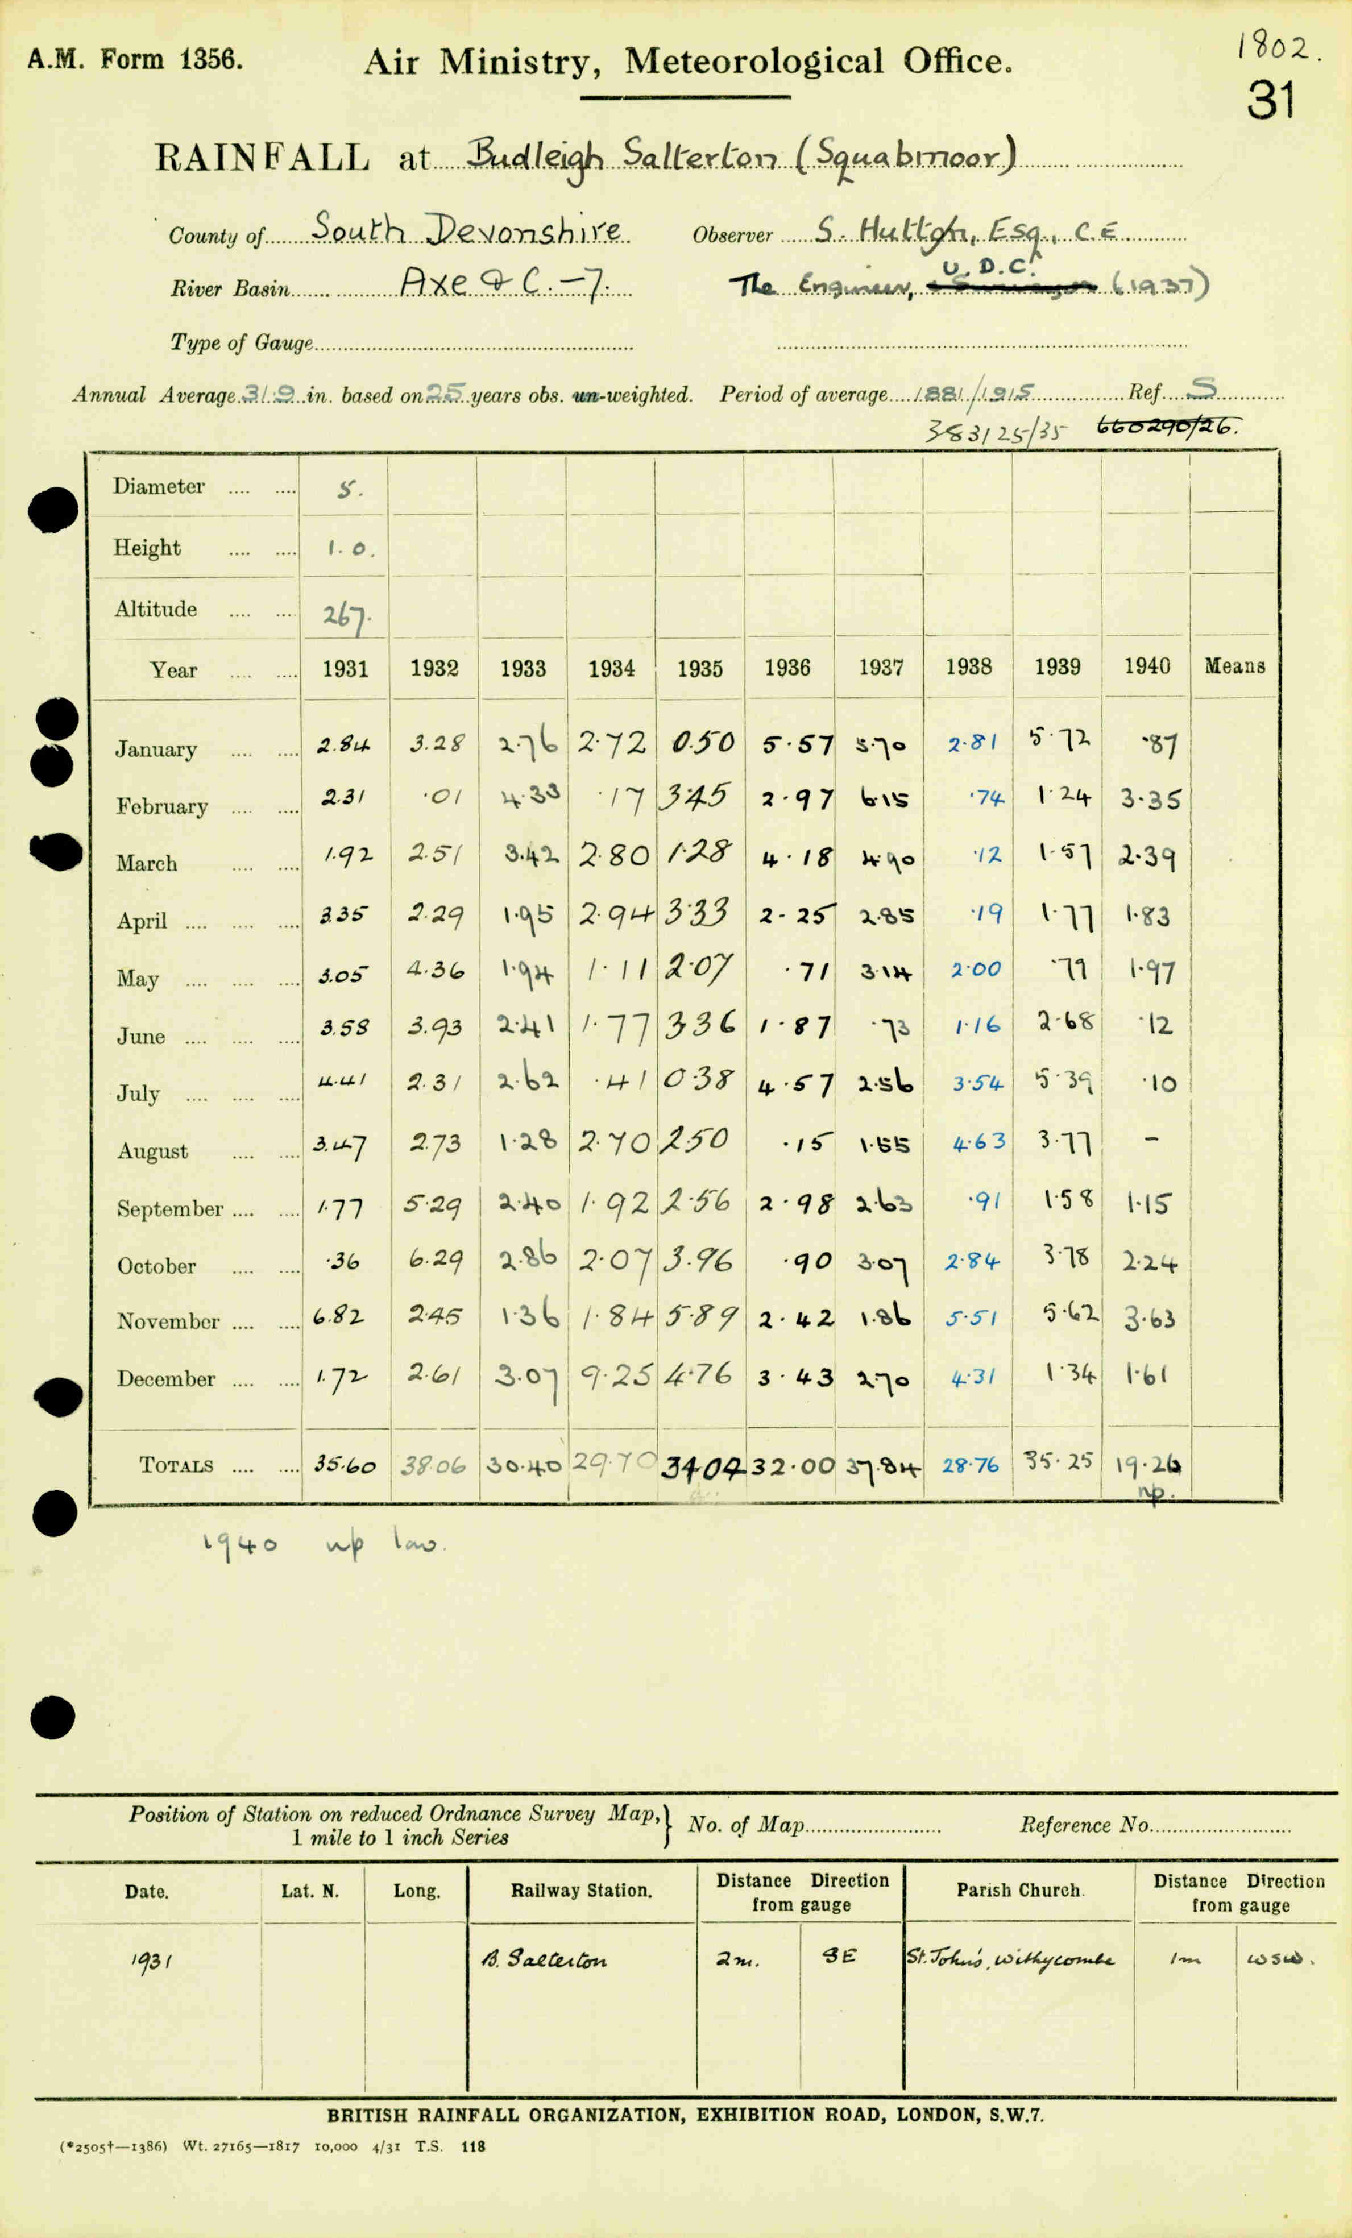 1802.
A.M. Form 1356. Air Ministry, Meteorological Office.
31
RAINFALL at Budleigh Salterton (Squabmoor)
County of South Devonshire Observer S. Hutton, Esq., C.E.
U.D.C.
River Basin Axe & C. - 7. The Engineer, (1937)
Type of Gauge
Annual Average 31.9 in. based on 25 years obs. un-weighted. Period of average 1881/1915 Ref. S
383125/35 660290/26.
Diameter .... .... 5.
Height .... .... 1.0.
Altitude .... .... 267.
Year .... .... 1931 1932 1933 1934 1935 1936 1937 1938 1939 1940 Means
January .... .... 2.84 3.28 2.76 2.72 0.50 5.57 5.70 2.81 5.72 .87
February .... .... 2.31 .01 4.33 .17 3.45 2.97 6.15 .74 1.24 3.35
March .... .... 1.92 2.51 3.42 2.80 1.28 4.18 4.90 .12 1.57 2.39
April .... .... .... 3.35 2.29 1.95 2.94 3.33 2.25 2.85 .19 1.77 1.83
May .... .... .... 3.05 4.36 1.94 1.11 2.07 .71 3.14 2.00 .79 1.97
June .... .... .... 3.58 3.93 2.41 1.77 3.36 1.87 .73 1.16 2.68 .12
July .... .... .... 4.41 2.31 2.62 .41 0.38 4.57 2.56 3.54 5.39 .10
August .... .... 3.47 2.73 1.28 2.70 2.50 .15 1.55 4.63 3.77 -
September .... .... 1.77 5.29 2.40 1.92 2.56 2.98 2.63 .91 1.58 1.15
October .... .... .36 6.29 2.86 2.07 3.96 .90 3.07 2.84 3.78 2.24
November .... .... 6.82 2.45 1.36 1.84 5.89 2.42 1.86 5.51 5.62 3.63
December .... .... 1.72 2.61 3.07 9.25 4.76 3.43 2.70 4.31 1.34 1.61
TOTALS .... .... 35.60 38.06 30.40 29.70 34.04 32.00 37.84 28.76 35.25 19.26
np.
1940 np low.
Position of Station on reduced Ordnance Survey Map, } No. of Map Reference No.
1 mile to 1 inch Series
Date. Lat. N. Long. Railway Station. Distance Direction from gauge Parish Church. Distance Direction from gauge
1931 B. Salterton 2m. SE St. John's, Withycombe 1m WSW.
BRITISH RAINFALL ORGANIZATION, EXHIBITION ROAD, LONDON, S.W.7.
(*2505†—1386) Wt. 27165—1817 10,000 4/31 T.S. 118